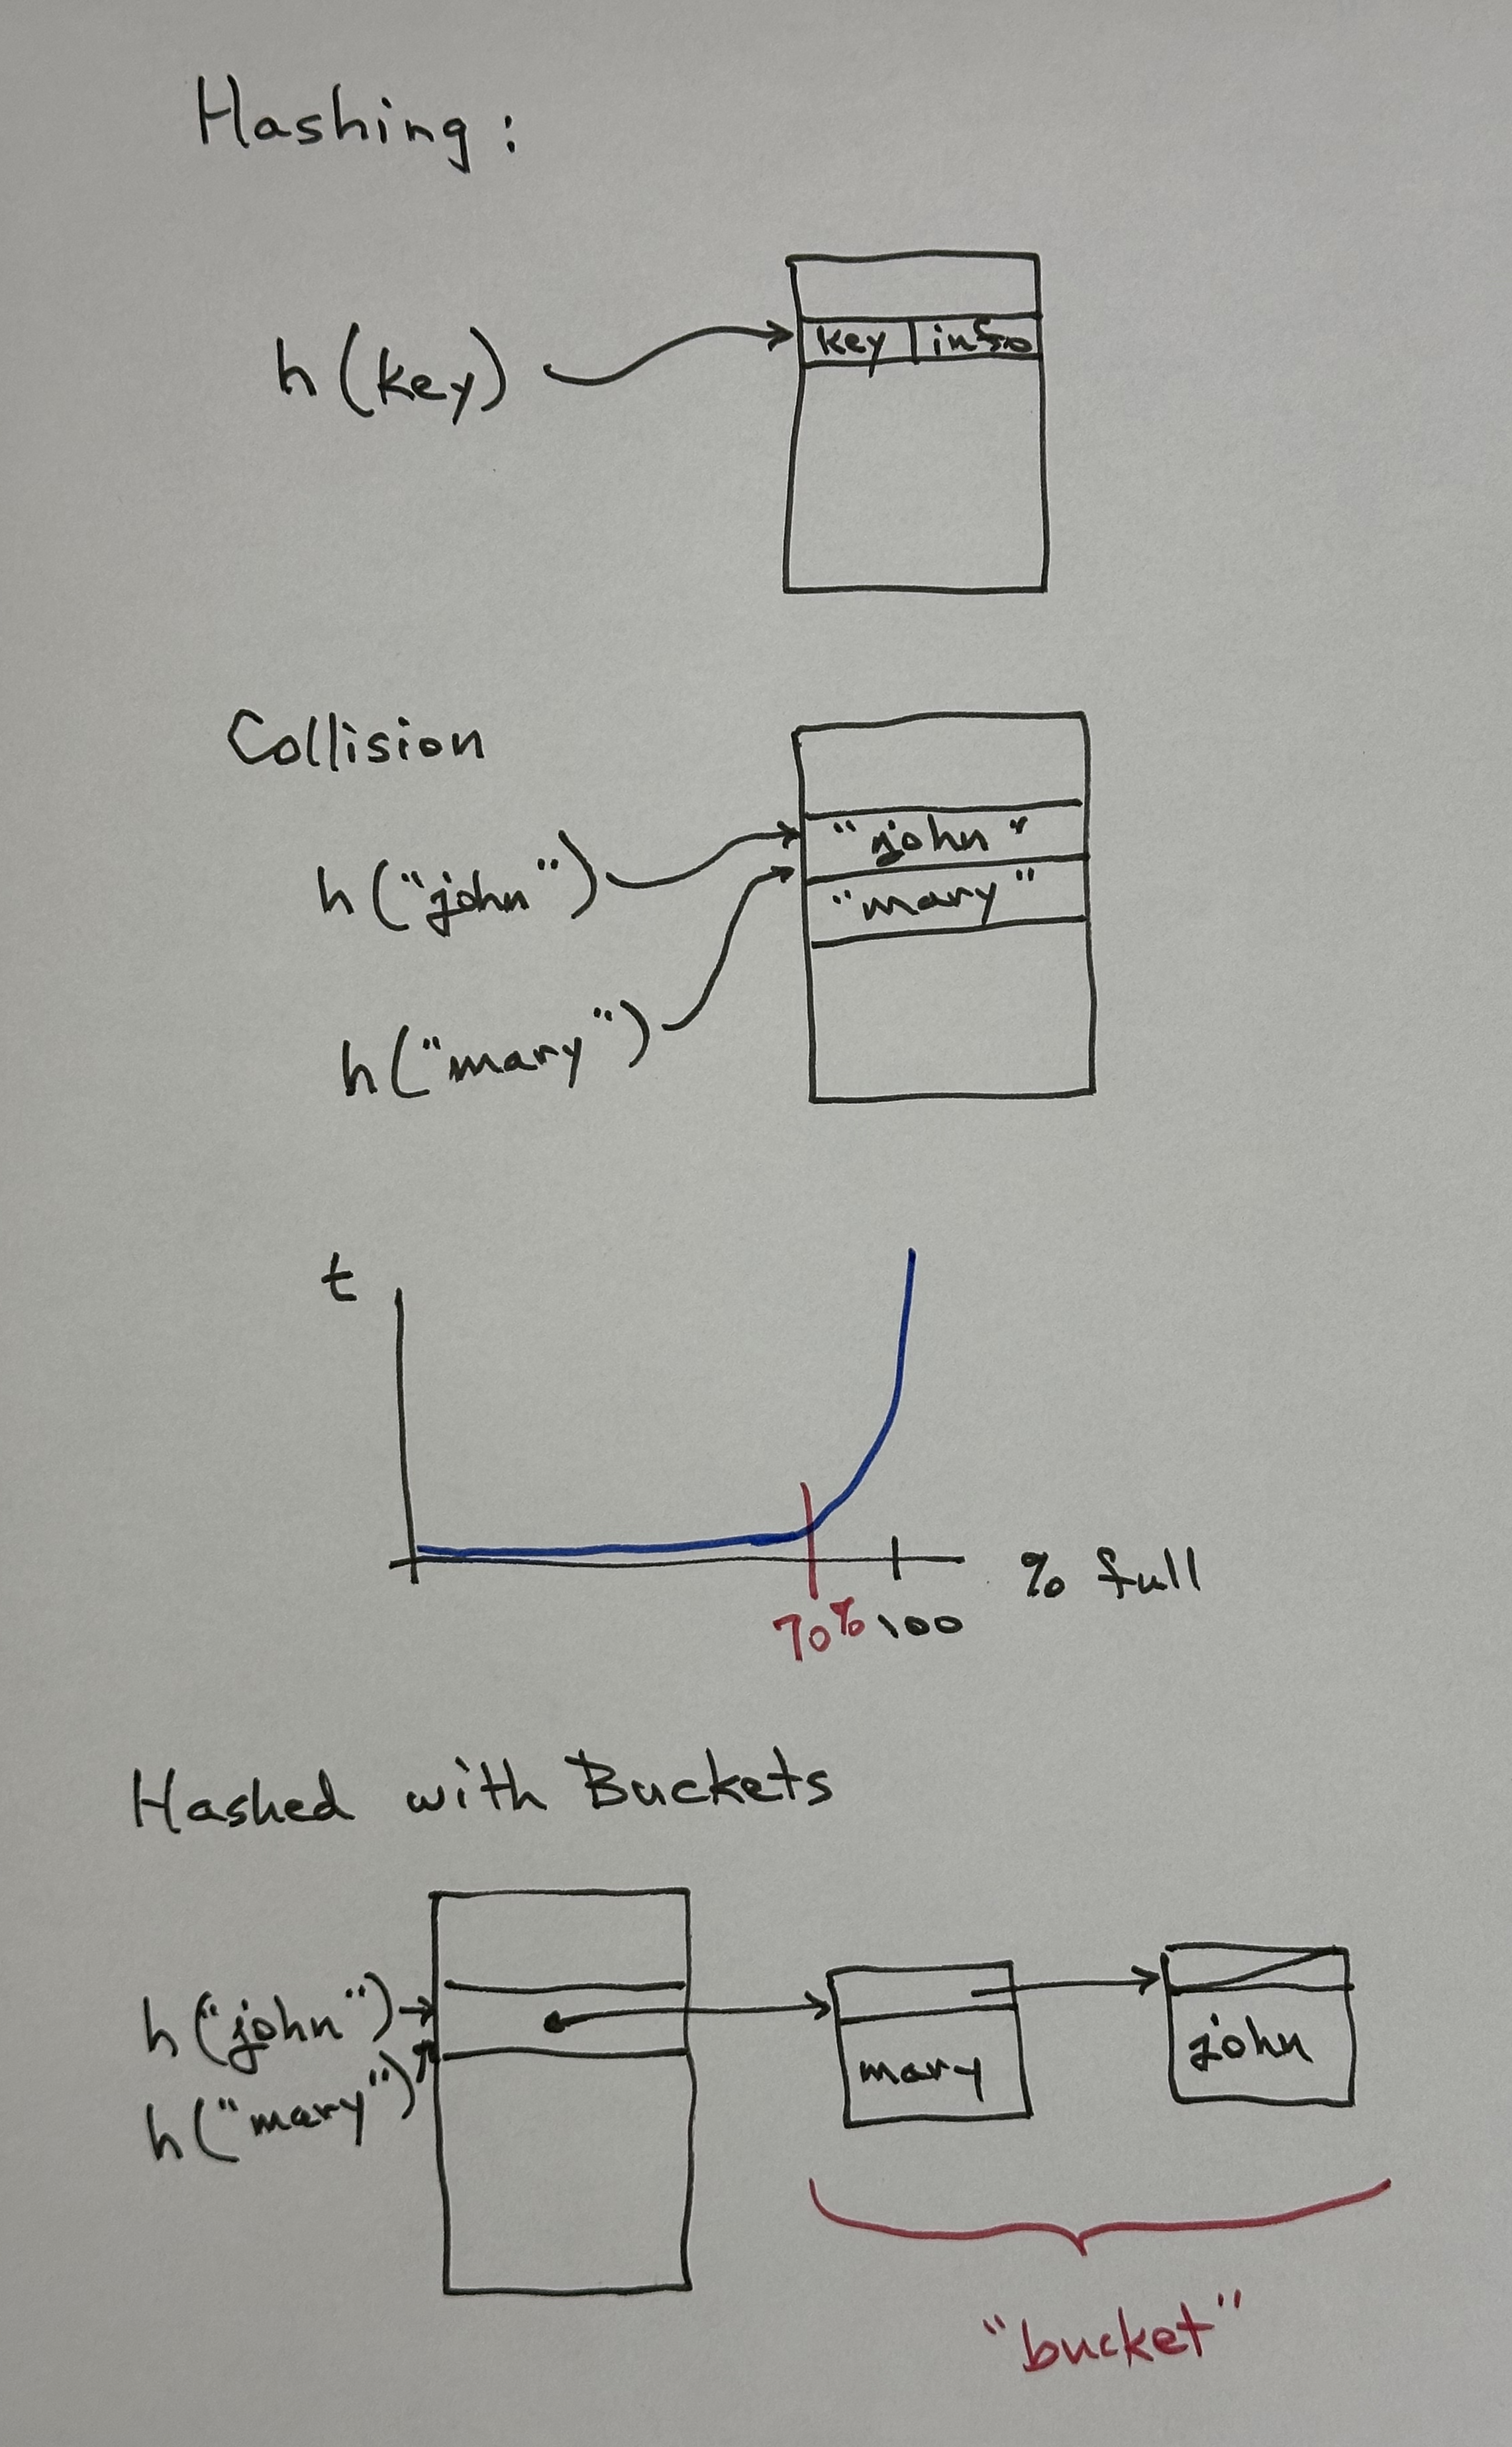 Hashing:
h(key)
key | info
Collision
h("john")
"john"
"mary"
h("mary")
t
% full
70% 100
Hashed with Buckets
h("john")
h("mary")
mary
john
"bucket"